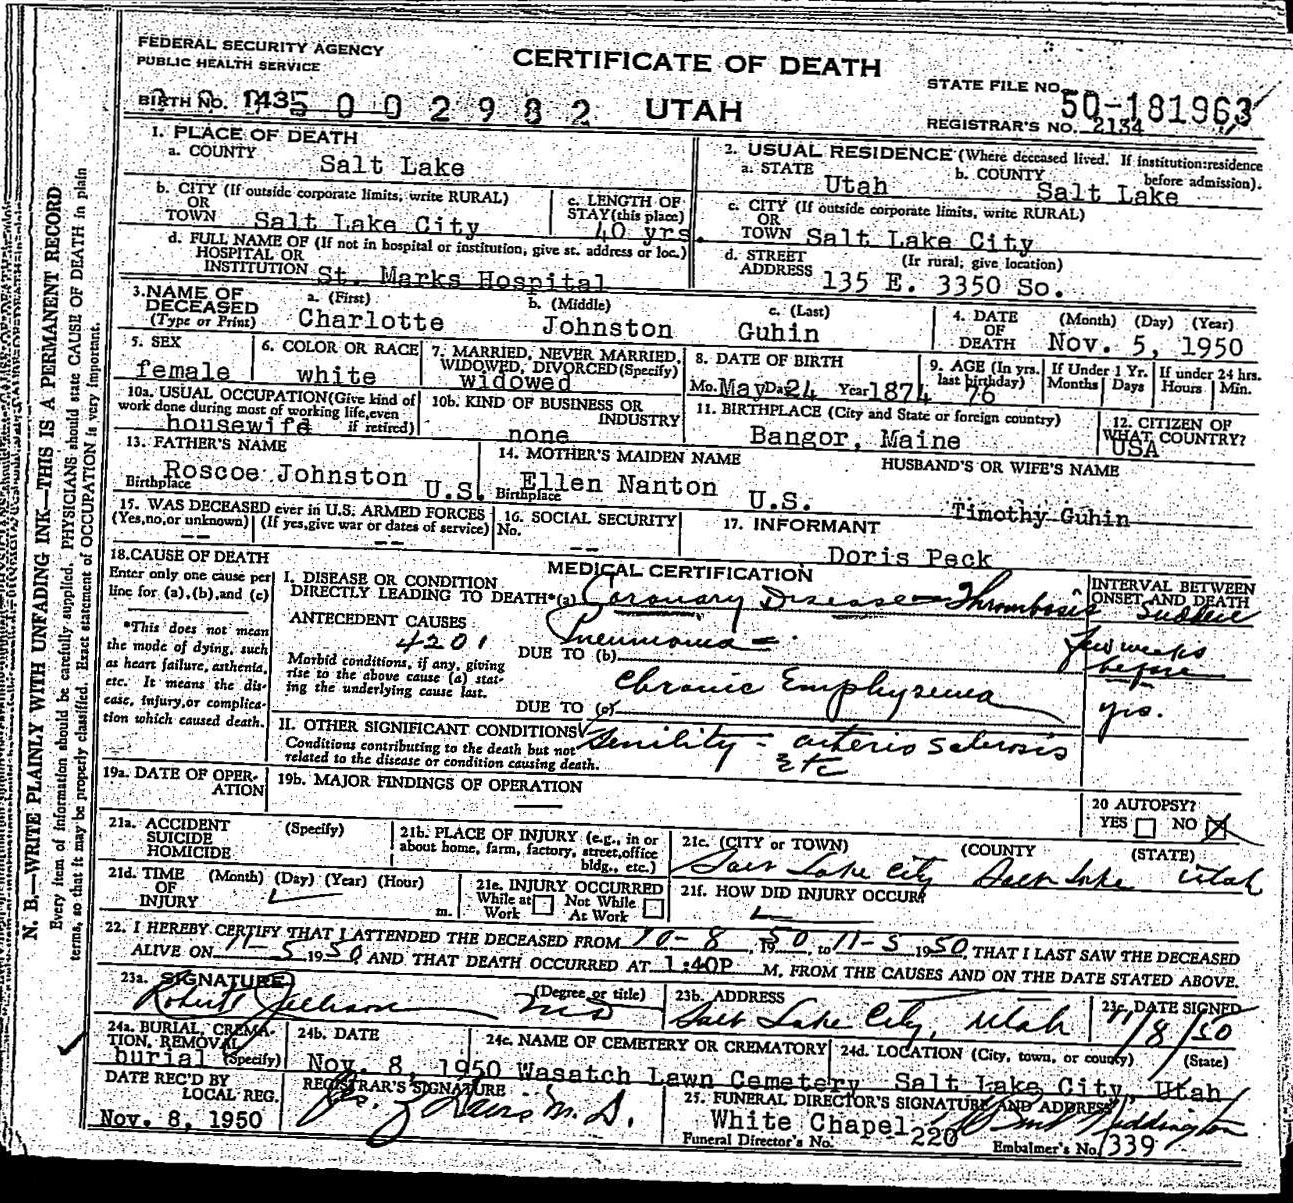 FEDERAL SECURITY AGENCY
PUBLIC HEALTH SERVICE
CERTIFICATE OF DEATH
STATE FILE NO. 50-181963
BIRTH NO. 1435 002982 UTAH
REGISTRAR'S NO. 2134
N. B.—WRITE PLAINLY WITH UNFADING INK—THIS IS A PERMANENT RECORD
Every item of information should be carefully supplied. PHYSICIANS should state CAUSE OF DEATH in plain
terms, so that it may be properly classified. Exact statement of OCCUPATION is very important.
1. PLACE OF DEATH
a. COUNTY
Salt Lake
2. USUAL RESIDENCE (Where deceased lived. If institution: residence
before admission).
a. STATE Utah b. COUNTY Salt Lake
b. CITY (If outside corporate limits, write RURAL)
OR
TOWN Salt Lake City
c. LENGTH OF
STAY (this place)
40 yrs.
c. CITY (If outside corporate limits, write RURAL)
OR
TOWN Salt Lake City
d. FULL NAME OF (If not in hospital or institution, give st. address or loc.)
HOSPITAL OR
INSTITUTION St. Marks Hospital
d. STREET (If rural, give location)
ADDRESS 135 E. 3350 So.
3. NAME OF
DECEASED
(Type or Print)
a. (First) b. (Middle) c. (Last)
Charlotte Johnston Guhin
4. DATE
OF
DEATH
(Month) (Day) (Year)
Nov. 5, 1950
5. SEX
female
6. COLOR OR RACE
white
7. MARRIED, NEVER MARRIED,
WIDOWED, DIVORCED (Specify)
widowed
8. DATE OF BIRTH
Mo. May Da. 24 Year 1874
9. AGE (In yrs.
last birthday)
76
If Under 1 Yr.
Months Days
If under 24 hrs.
Hours Min.
10a. USUAL OCCUPATION (Give kind of
work done during most of working life, even
if retired)
housewife
10b. KIND OF BUSINESS OR
INDUSTRY
none
11. BIRTHPLACE (City and State or foreign country)
Bangor, Maine
12. CITIZEN OF
WHAT COUNTRY?
USA
13. FATHER'S NAME
Roscoe Johnston
Birthplace U.S.
14. MOTHER'S MAIDEN NAME
Ellen Nanton
Birthplace U.S.
HUSBAND'S OR WIFE'S NAME
Timothy Guhin
15. WAS DECEASED ever in U.S. ARMED FORCES
(Yes, no, or unknown) (If yes, give war or dates of service)
-- --
16. SOCIAL SECURITY
No.
--
17. INFORMANT
Doris Peck
18. CAUSE OF DEATH
Enter only one cause per
line for (a), (b), and (c)
*This does not mean
the mode of dying, such
as heart failure, asthenia,
etc. It means the dis-
ease, injury, or complica-
tion which caused death.
MEDICAL CERTIFICATION
I. DISEASE OR CONDITION
DIRECTLY LEADING TO DEATH*(a) Coronary Disease - Thrombosis
INTERVAL BETWEEN
ONSET AND DEATH
Sudden
ANTECEDENT CAUSES
4201
Morbid conditions, if any, giving
rise to the above cause (a) stat-
ing the underlying cause last.
DUE TO (b) Pneumonia
few weeks
before
DUE TO (c) Chronic Emphysema
yrs.
II. OTHER SIGNIFICANT CONDITIONS
Conditions contributing to the death but not
related to the disease or condition causing death.
Senility - arterio sclerosis
etc
19a. DATE OF OPER-
ATION
19b. MAJOR FINDINGS OF OPERATION
20 AUTOPSY?
YES NO X
21a. ACCIDENT
SUICIDE
HOMICIDE
(Specify)
21b. PLACE OF INJURY (e.g., in or
about home, farm, factory, street, office
bldg., etc.)
21c. (CITY or TOWN) (COUNTY (STATE)
Salt Lake City Salt Lake Utah
21d. TIME (Month) (Day) (Year) (Hour)
OF
INJURY m.
21e. INJURY OCCURRED
While at Not While
Work At Work
21f. HOW DID INJURY OCCUR?
22. I HEREBY CERTIFY THAT I ATTENDED THE DECEASED FROM 10-8, 1950, to 11-5 1950 THAT I LAST SAW THE DECEASED
ALIVE ON 11-5 1950 AND THAT DEATH OCCURRED AT 1:40P M, FROM THE CAUSES AND ON THE DATE STATED ABOVE.
23a. SIGNATURE (Degree or title)
Robert MD
23b. ADDRESS
Salt Lake City, Utah
23c. DATE SIGNED
11/8/50
24a. BURIAL, CREMA-
TION, REMOVAL
(Specify)
burial
24b. DATE
Nov. 8, 1950
24c. NAME OF CEMETERY OR CREMATORY
Wasatch Lawn Cemetery
24d. LOCATION (City, town, or county) (State)
Salt Lake City, Utah
DATE REC'D BY
LOCAL REG.
Nov. 8, 1950
REGISTRAR'S SIGNATURE
M. D.
25. FUNERAL DIRECTOR'S SIGNATURE AND ADDRESS
White Chapel
Funeral Director's No. 220
Embalmer's No. 339